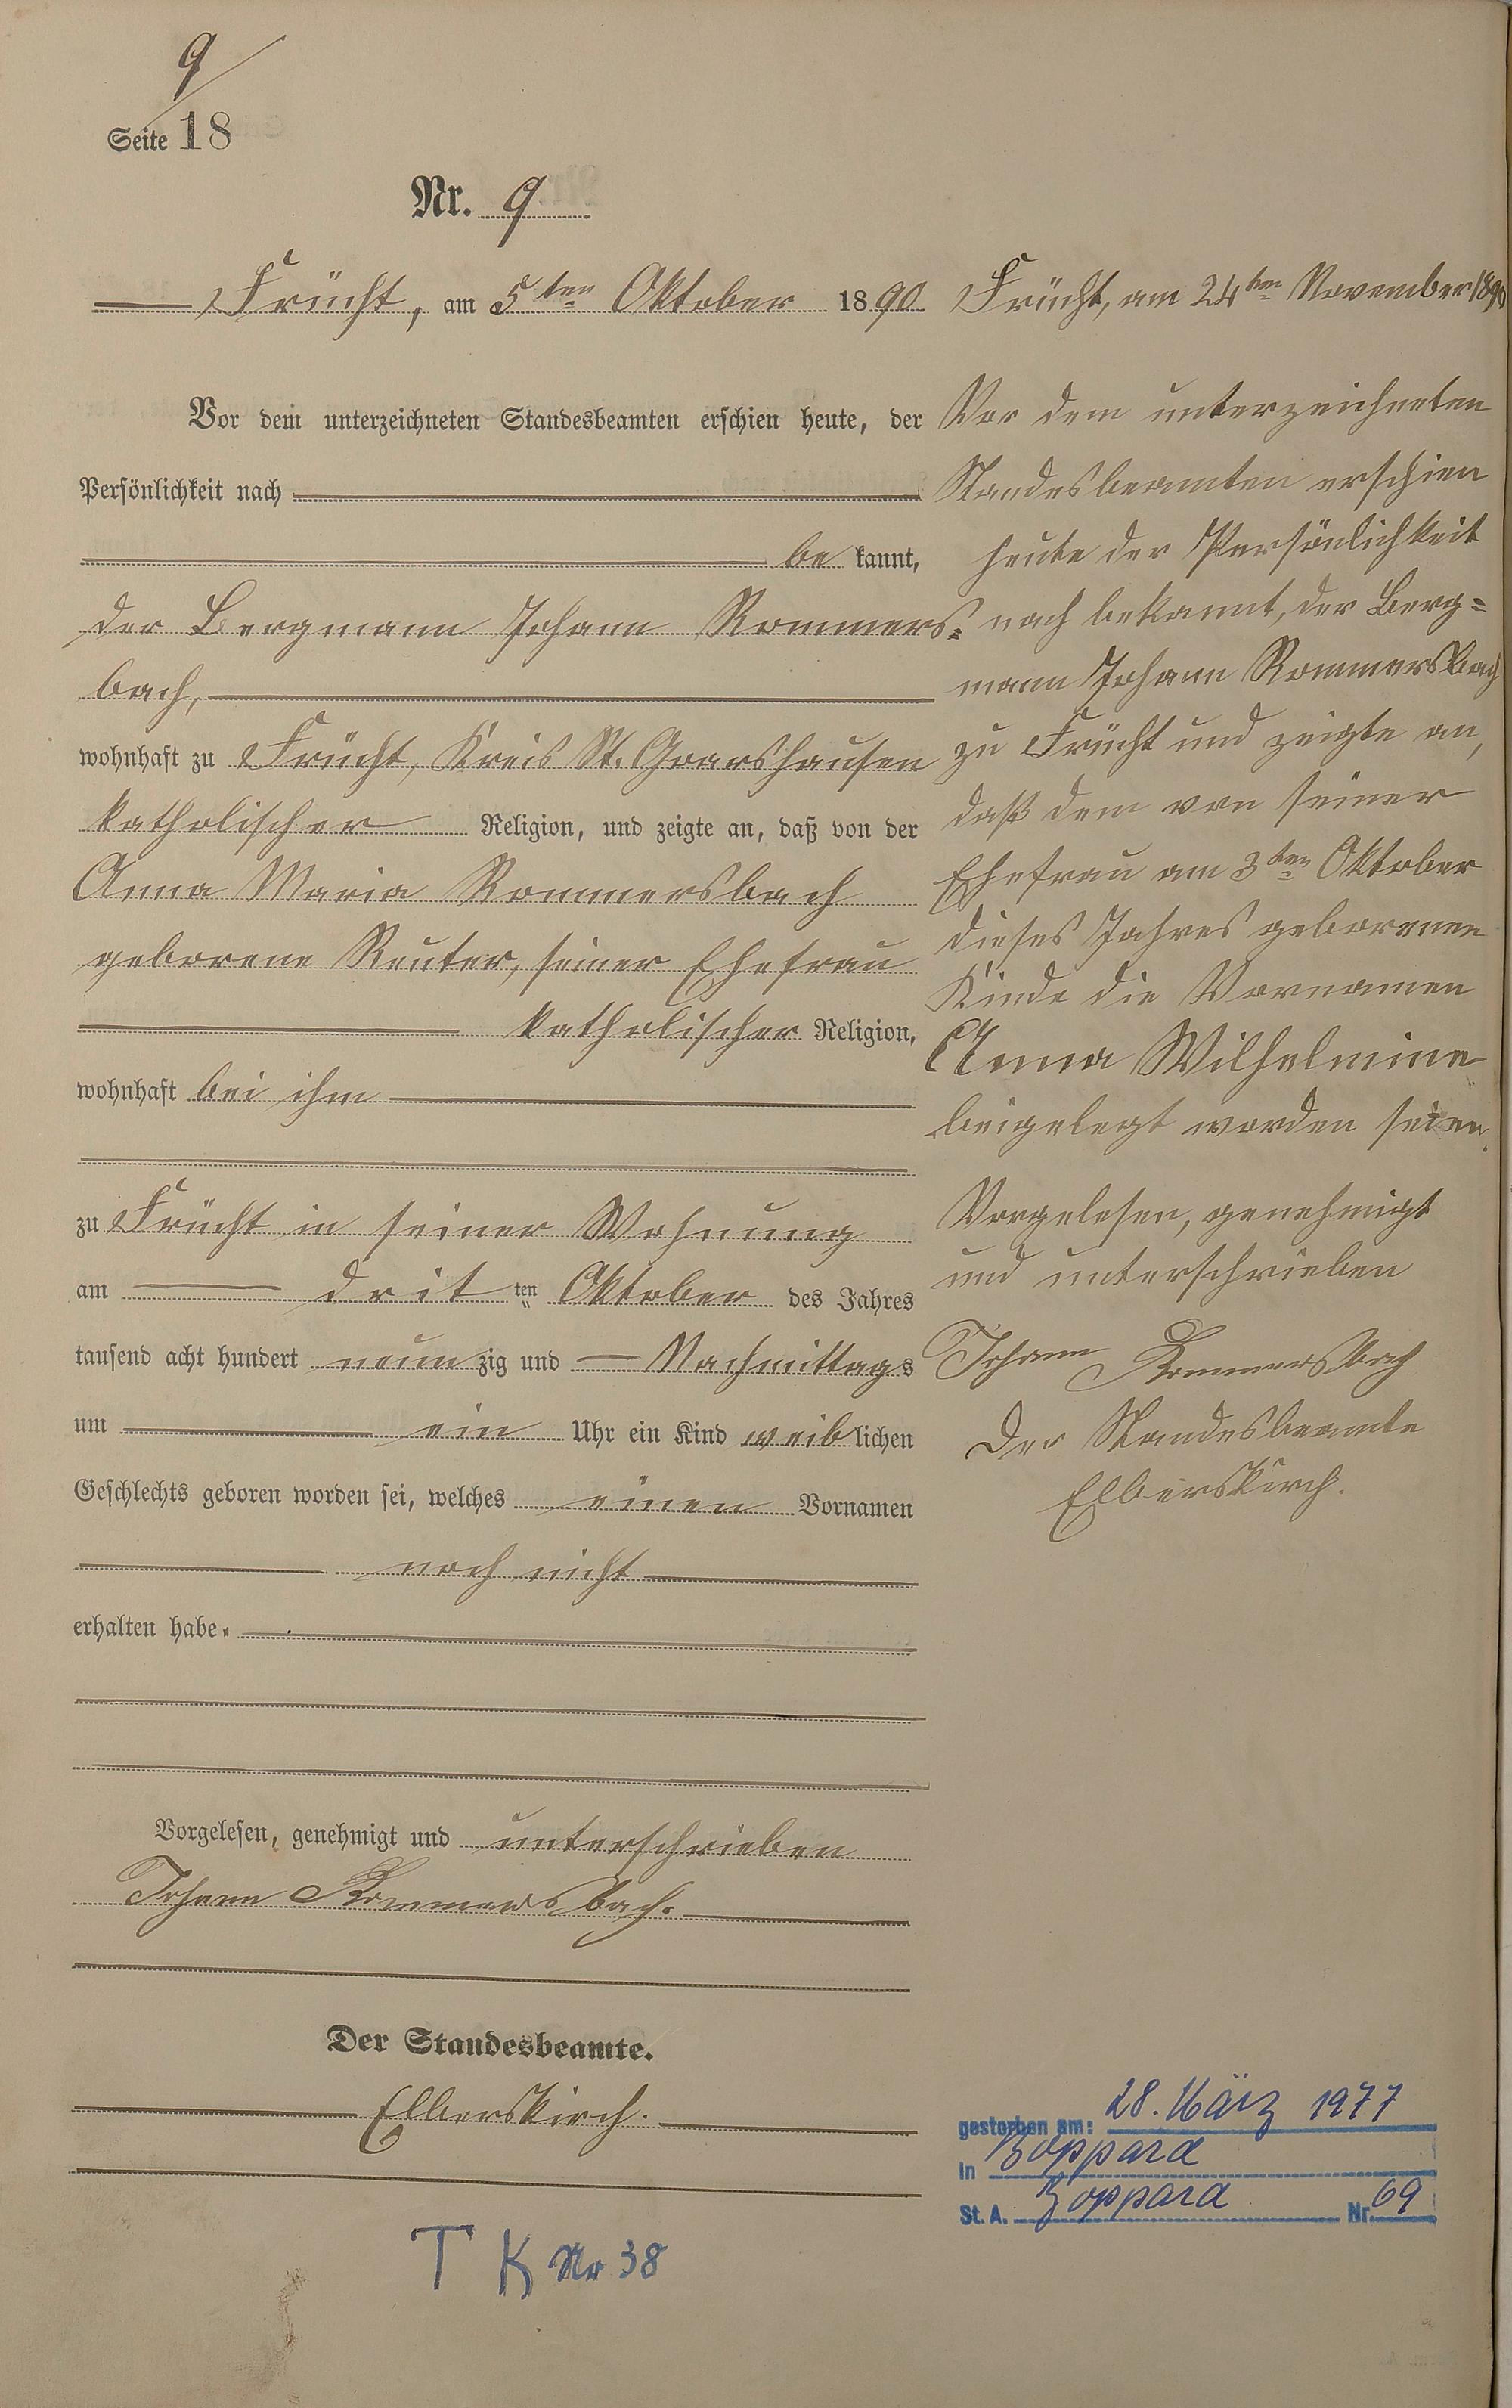 9
Seite 18
Nr. 9
Frücht, am 5ten Oktober 1890
Vor dem unterzeichneten Standesbeamten erschien heute, der
Persönlichkeit nach
be kannt,
der Bergmann Johann Rommers=
bach,
wohnhaft zu Frücht, Kreis St. Goarshausen
katholischer Religion, und zeigte an, daß von der
Anna Maria Rommersbach
geborene Reuter, seiner Ehefrau
katholischer Religion,
wohnhaft bei ihm
zu Frücht in seiner Wohnung
am dritten Oktober des Jahres
tausend acht hundert neunzig und Nachmittags
um ein Uhr ein Kind weiblichen
Geschlechts geboren worden sei, welches einen Vornamen
noch nicht
erhalten habe.
Vorgelesen, genehmigt und unterschrieben
Johann Rommersbach.
Der Standesbeamte.
Elberskirch.
T K Nr 38
Frücht, am 24ten November 1890
Vor dem unterzeichneten
Standesbeamten erschien
heute der Persönlichkeit
nach bekannt, der Berg=
mann Johann Rommersbach
zu Frücht und zeigte an,
daß dem von seiner
Ehefrau am 3ten Oktober
dieses Jahres geborenen
Kinde die Vornamen
Anna Wilhelmine
beigelegt worden seien.
Vorgelesen, genehmigt
und unterschrieben
Johann Rommersbach
Der Standesbeamte
Elberskirch.
gestorben am: 28. März 1977
in Boppard
St. A. Boppard Nr. 69